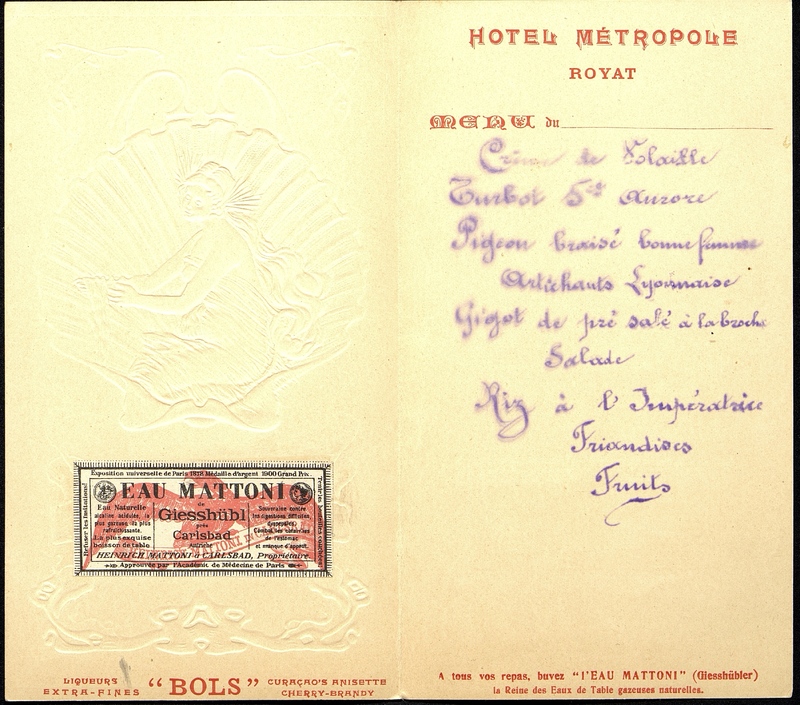 HOTEL MÉTROPOLE
ROYAT
MENU du
Crème de Volaille
Turbot Sce Aurore
Pigeon braisé bonne femme
Artichauts Lyonnaise
Gigot de pré salé à la broche
Salade
Riz à l'Impératrice
Friandises
Fruits
A tous vos repas, buvez "l'EAU MATTONI" (Giesshübler)
la Reine des Eaux de Table gazeuses naturelles.
Exposition universelle de Paris 1878 Médaille d'argent 1900 Grand Prix
EAU MATTONI
de
Giesshübl
près
Carlsbad
Autriche
Eau Naturelle
alcaline acidulée, la
plus gazeuse, la plus
rafraîchissante.
La plus exquise
boisson de table
Souveraine contre
les digestions difficiles,
dyspepsies,
l'estomac
et manque d'appétit.
HEINRICH MATTONI à CARLSBAD, Propriétaire.
Approuvée par l'Académie de Médecine de Paris
LIQUEURS
EXTRA-FINES
"BOLS"
CURAÇAO'S ANISETTE
CHERRY-BRANDY